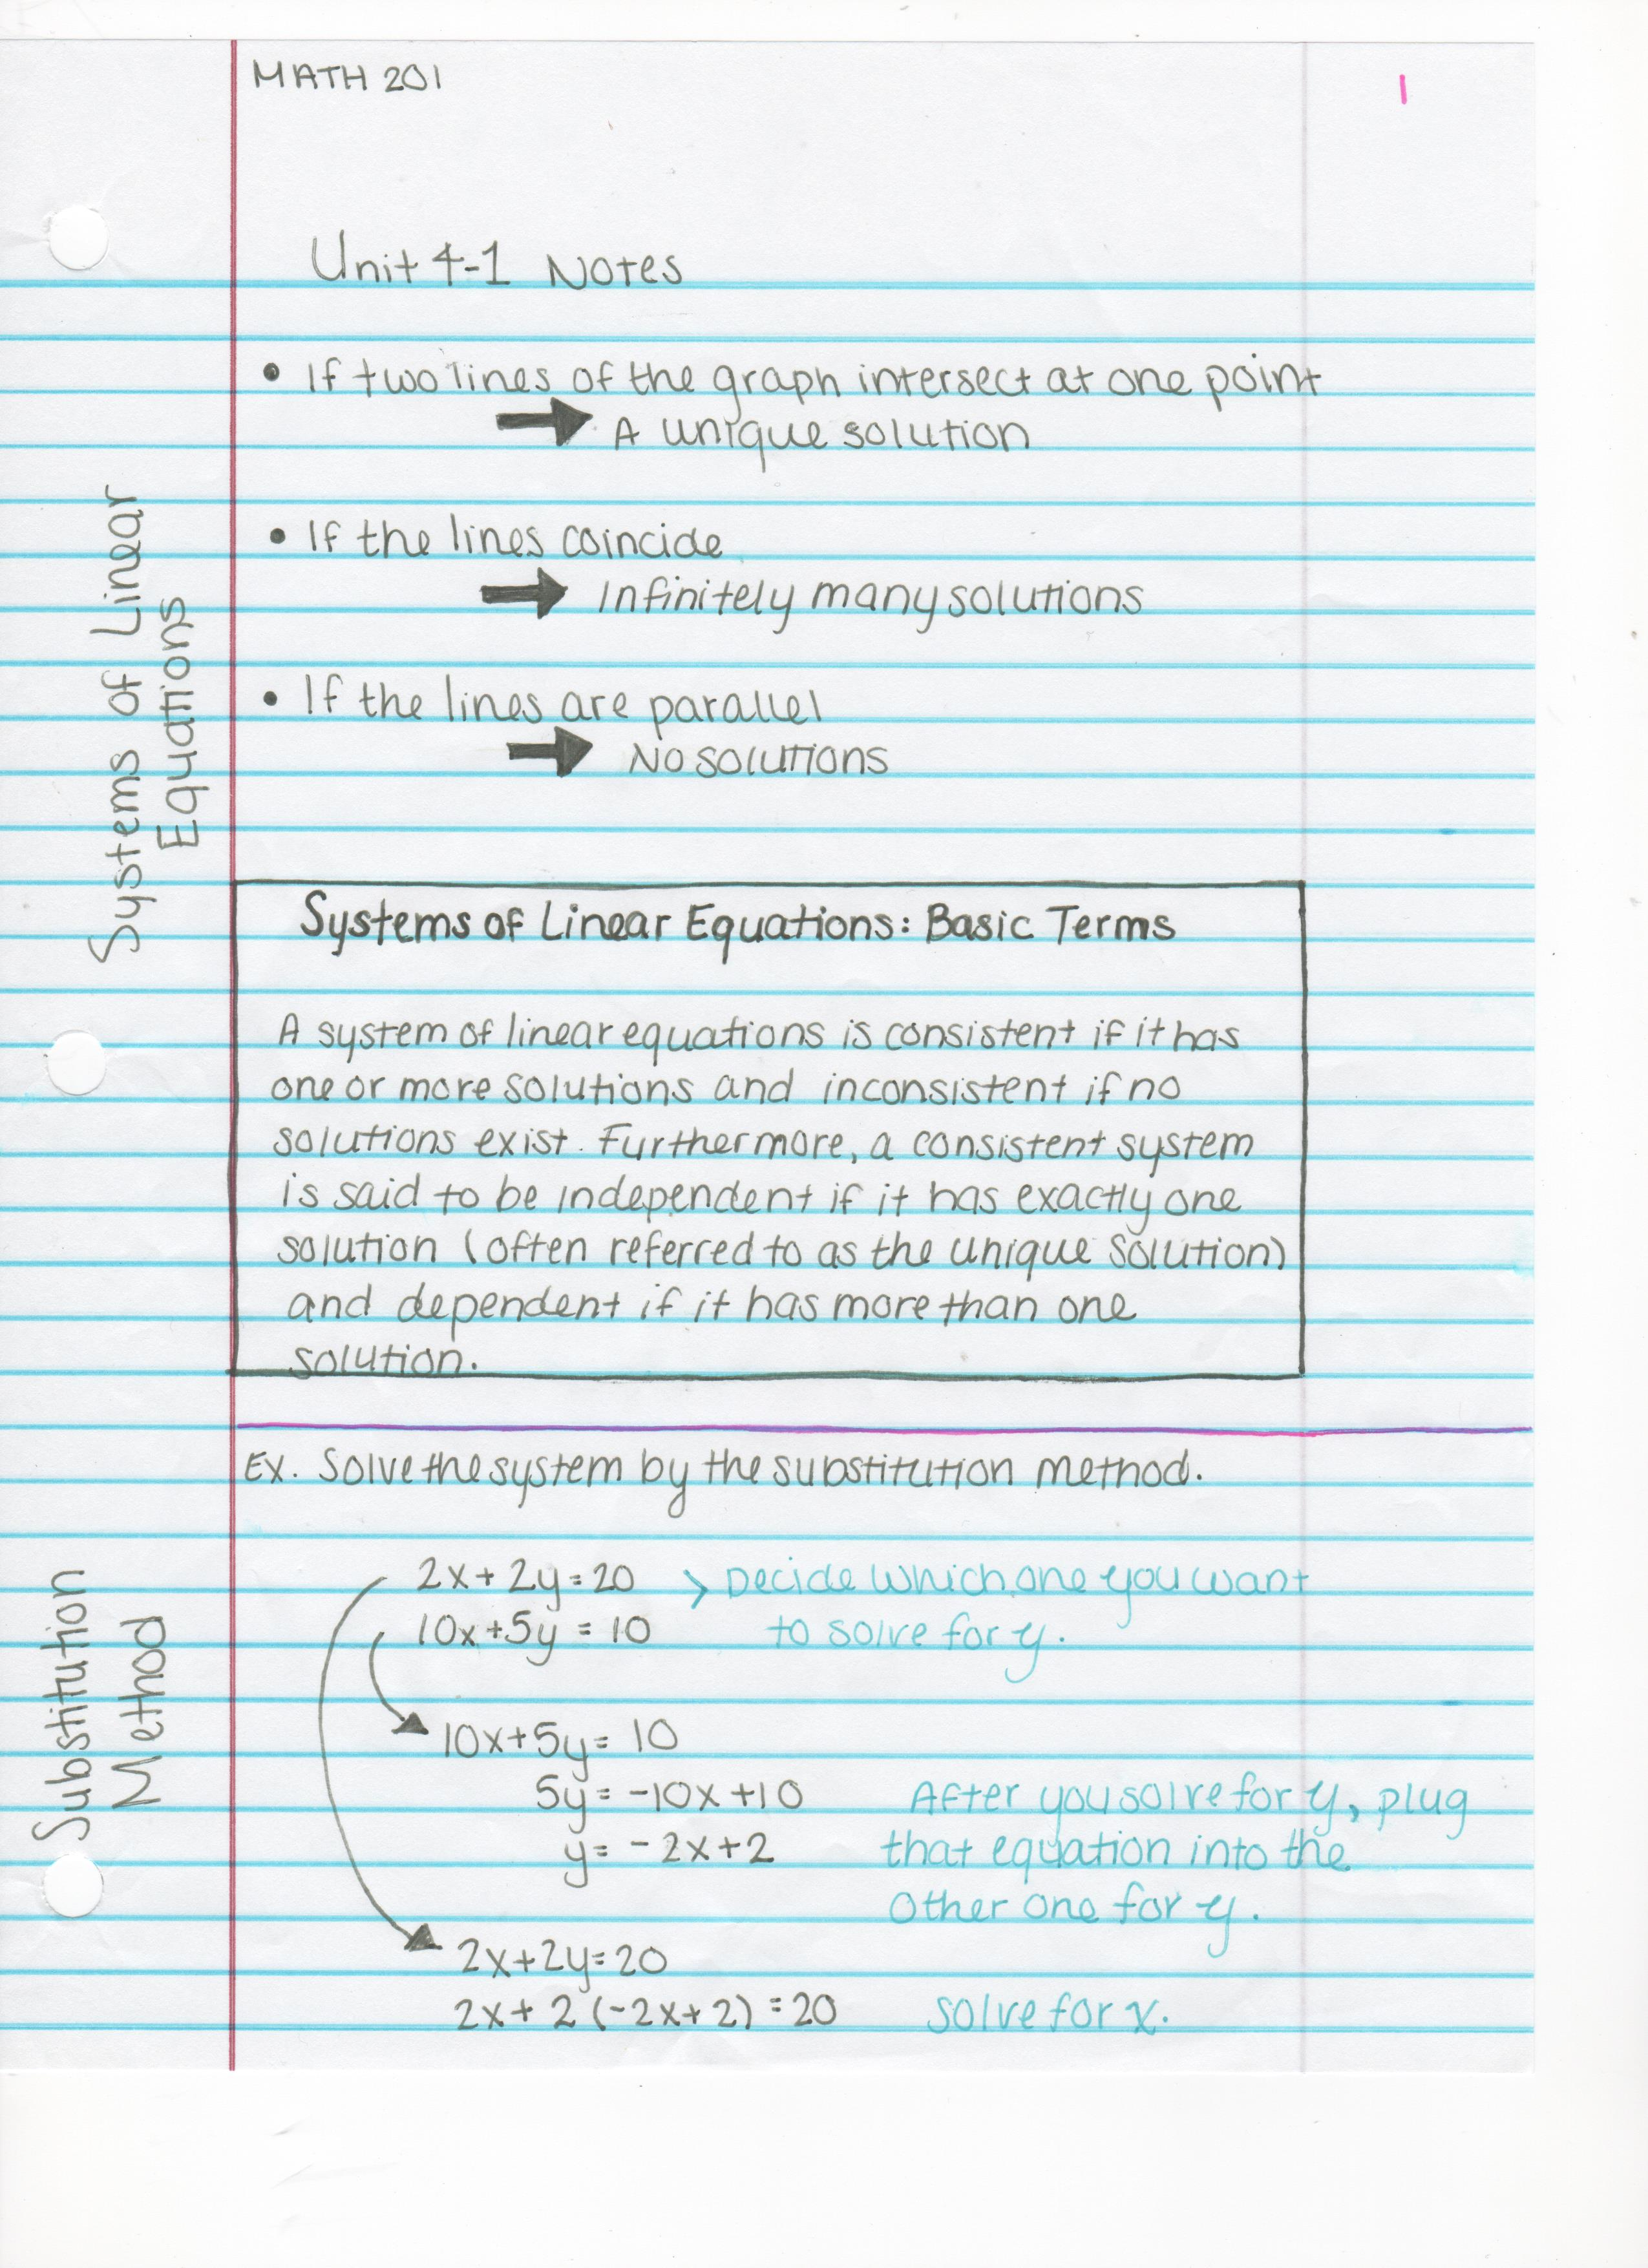 MATH 201
1
Unit 4-1 Notes
• If two lines of the graph intersect at one point
→ A unique solution
• If the lines coincide
→ Infinitely many solutions
• If the lines are parallel
→ No solutions
Systems of Linear
Equations
Systems of Linear Equations: Basic Terms
A system of linear equations is consistent if it has
one or more solutions and inconsistent if no
solutions exist. Furthermore, a consistent system
is said to be independent if it has exactly one
solution (often referred to as the unique solution)
and dependent if it has more than one
solution.
Ex. Solve the system by the substitution method.
Substitution
Method
2x + 2y = 20 > Decide which one you want
10x + 5y = 10 to solve for y.
10x + 5y = 10
5y = -10x + 10 After you solve for y, plug
y = -2x + 2 that equation into the
other one for y.
2x + 2y = 20
2x + 2 (-2x + 2) = 20 solve for x.